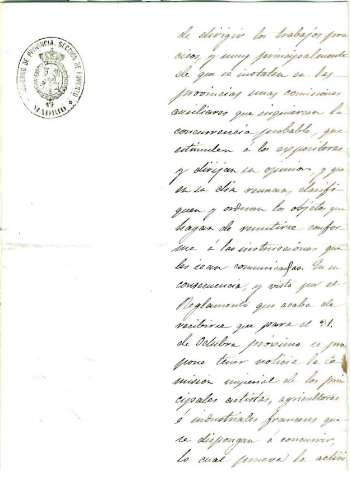 GOBIERNO DE PROVINCIA. SECCION DE FOMENTO
MADRID
de dirigir los trabajos pre
cisos, y muy principalmente
de que se instalen en las
provincias unas comisiones
auxiliares que inquieran la
concurrencia probable, que
estimulen á los expositores
y dirijan su opinion, y que
en su dia reunan, clasifi
quen y ordenen los objetos que
hayan de remitirse confor
me á las instrucciones que
les sean comunicadas. En su
consecuencia, y visto por el
Reglamento que acaba de
recibirse que para el 31.
de Octubre próximo se pro
pone tener noticia la Co
mision imperial de los prin
cipales artistas, agricultores
é industriales franceses que
se dispongan á concurrir,
lo cual prueva la activi